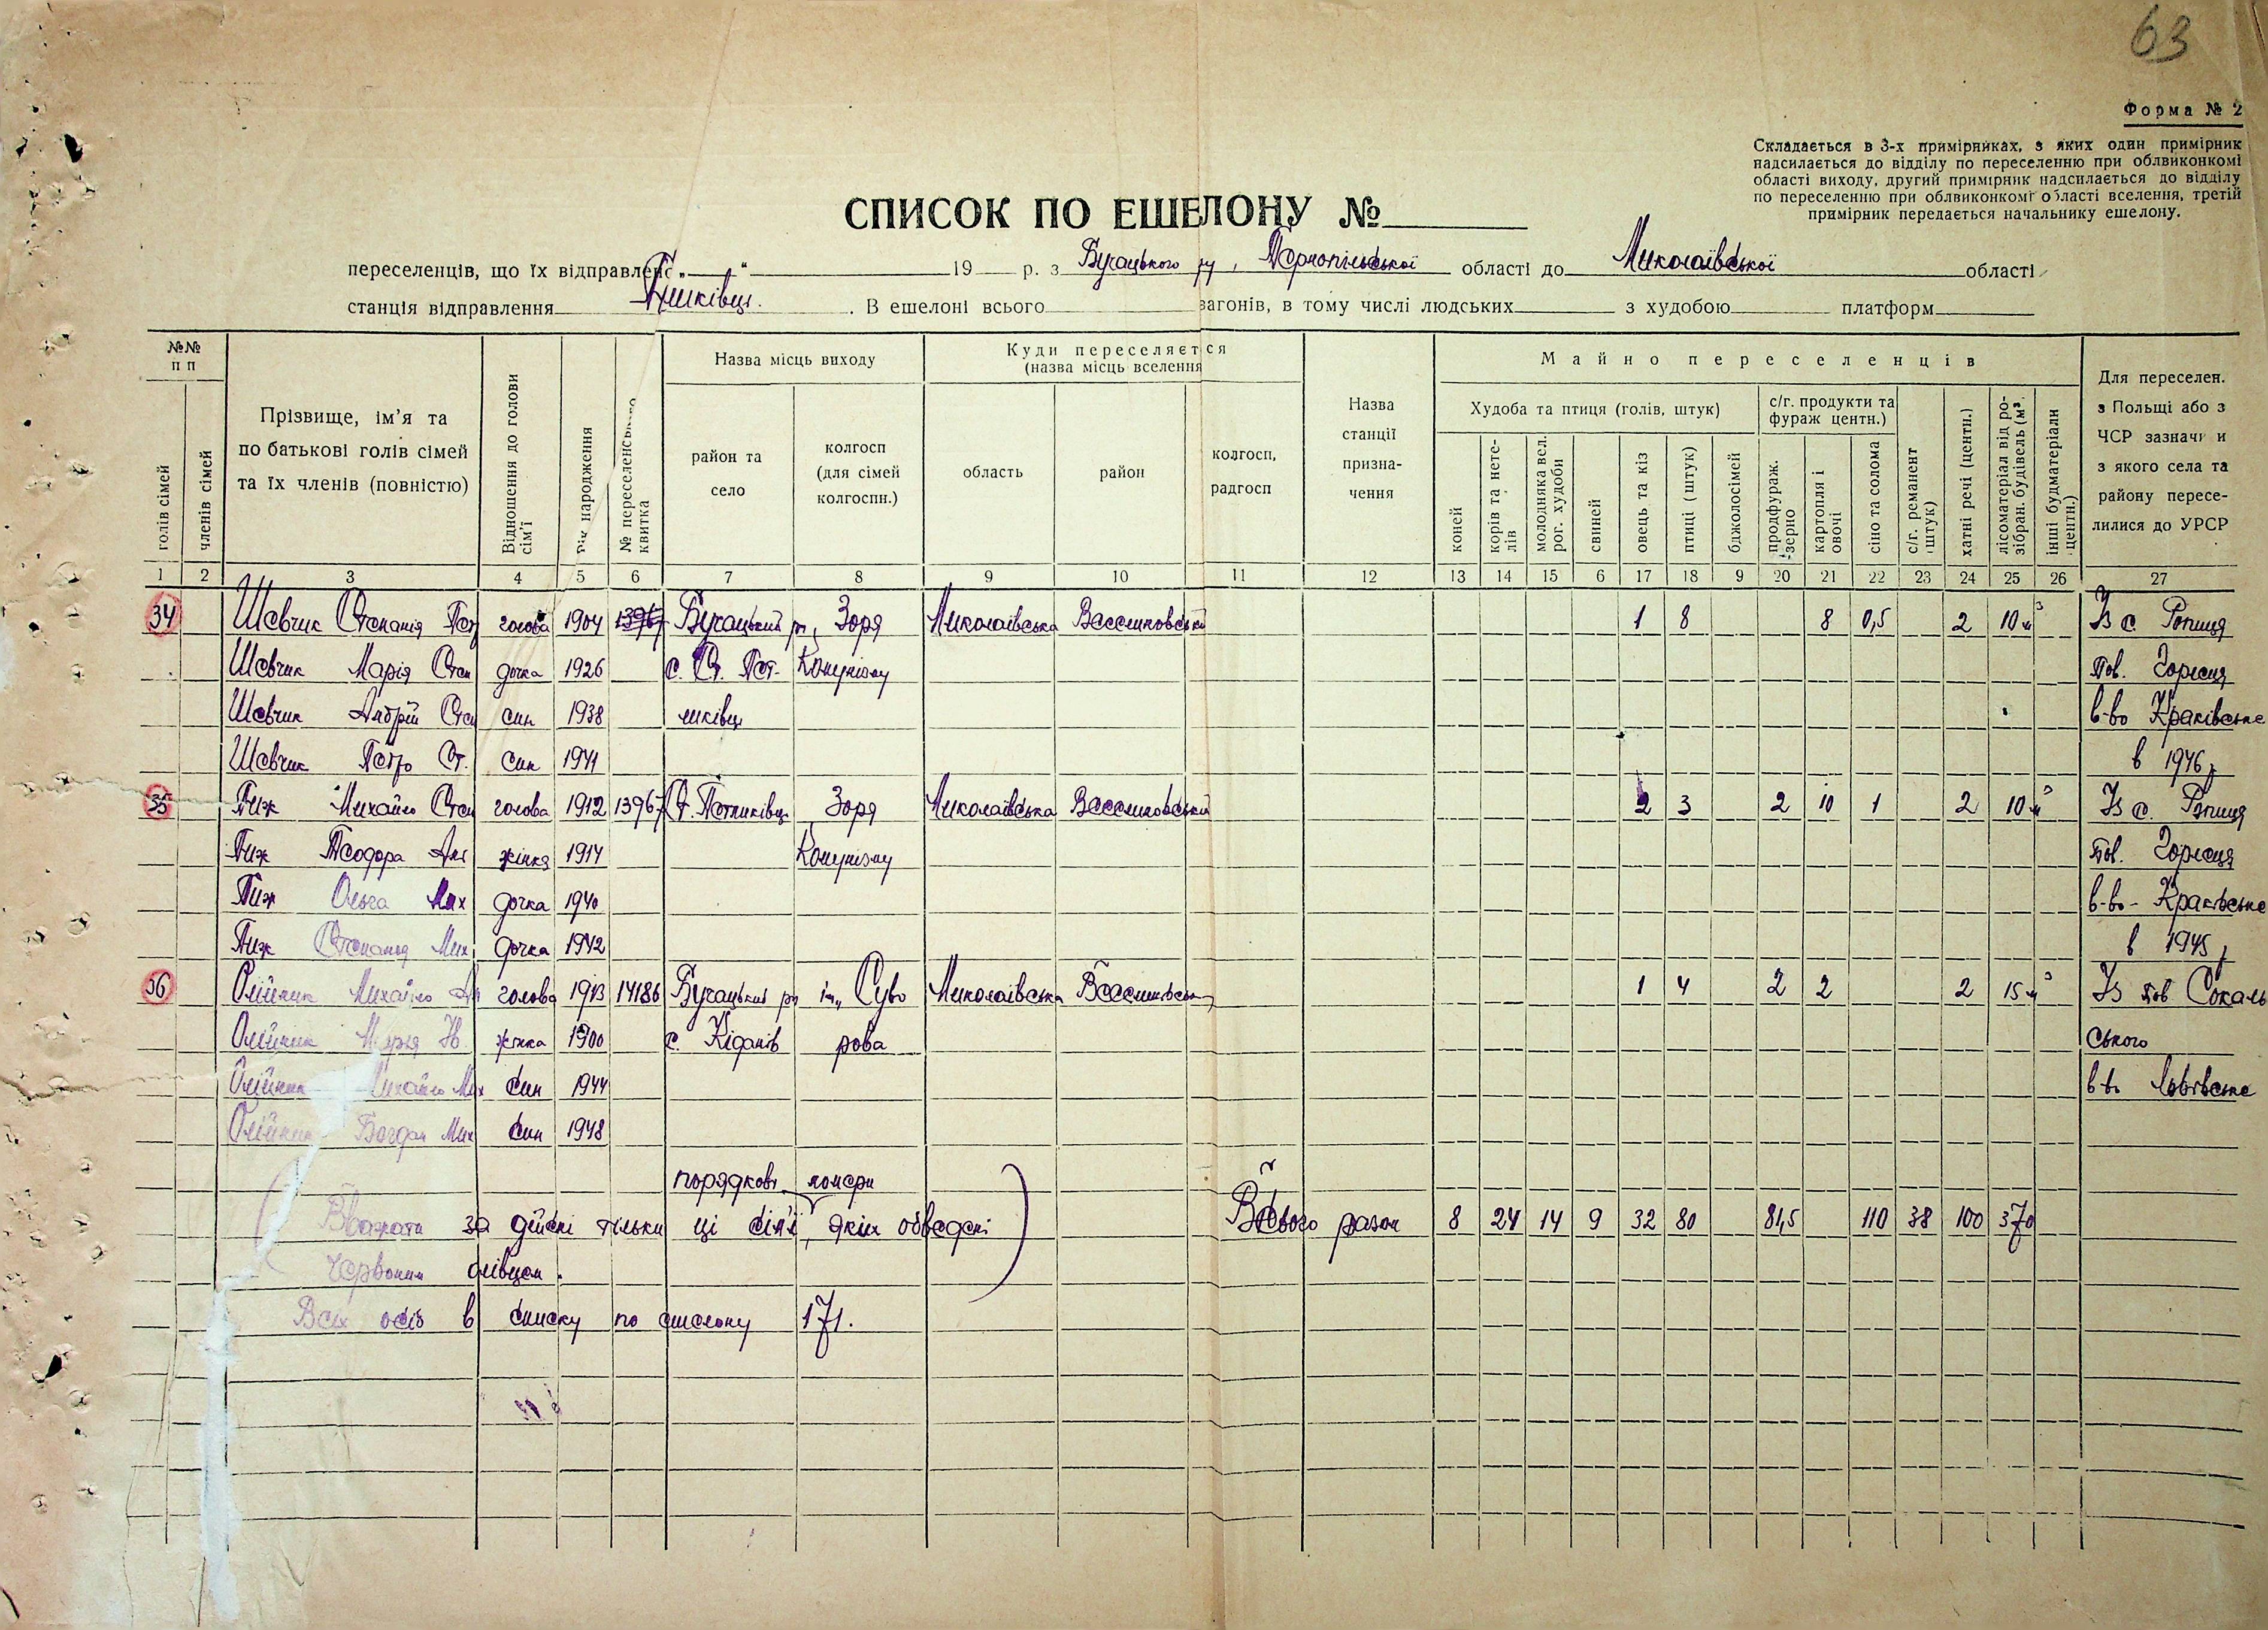 63
Форма № 2
Складається в 3-х примірниках, з яких один примірник
надсилається до відділу по переселенню при облвиконкомі
області виходу, другий примірник надсилається до відділу
по переселенню при облвиконкомі області вселення, третій
примірник передається начальнику ешелону.
СПИСОК ПО ЕШЕЛОНУ №
переселенців, що їх відправлено „ “ 19 р. з Бучацького р-ну, Тернопільської області до Миколаївської області
станція відправлення Пишківці. В ешелоні всього вагонів, в тому числі людських з худобою платформ
№№ п п
голів сімей
членів сімей
Прізвище, ім’я та по батькові голів сімей та їх членів (повністю)
Відношення до голови сім’ї
Рік народження
№ переселенського квитка
Назва місць виходу
район та село
колгосп (для сімей колгоспн.)
Куди переселяється (назва місць вселення
область
район
колгосп, радгосп
Назва станції призна- чення
Майно переселенців
Худоба та птиця (голів, штук)
коней
корів та нете- лів
молодняка вел. рог. худоби
свиней
овець та кіз
птиці (штук)
бджолосімей
с/г. продукти та фураж центн.)
продфураж. зерно
картопля і овочі
сіно та солома
с/г. реманент штук)
хатні речі (центн.)
лісоматеріал від ро- зібран. будівель (м³.
інші будматеріали центн.)
Для переселен. з Польщі або з ЧСР зазначи и з якого села та району пересе- лилися до УРСР
1 2 3 4 5 6 7 8 9 10 11 12 13 14 15 6 17 18 9 20 21 22 23 24 25 26 27
34 Шевчик Степанія Пет голова 1904 13967 Бучацький рн, Зоря Миколаївська Веселиновський 1 8 8 0,5 2 10 м³ Із с. Ропиця
Шевчик Марія Сте дочка 1926 с. Ст. Пет- Комунізму Пов. Горлиця
Шевчик Андрій Сте син 1938 ликівці в-во Краківське
Шевчик Петро Ст. син 1941 в 1946 р
35 Пиж Михайло Сте голова 1912 13967 Ст. Петликівці Зоря Миколаївська Веселиновський 2 3 2 10 1 2 10 м³ Із с. Ропиця
Пиж Теодора жінка 1914 Комунізму Пов. Горлиця
Пиж Ольга Мих дочка 1940 в-во- Краківське
Пиж Степанія Мих дочка 1942 в 1945 р
36 Олійник Михайло голова 1913 14186 Бучацький рн ім. Суво Миколаївська Веселинівськ 1 4 2 2 2 15 м³ Із пов Сокаль
Олійник Марія жінка 1900 с. Кіданів рова ського
Олійник Михайло Мих син 1944 в-во Львівське
Олійник Богдан Мих син 1948
порядкові номери
(Вважати за дійсні тільки ці сім'ї, яких обведені) Всього разом 8 24 14 9 32 80 81,5 110 38 100 370
червоним олівцем.
Всіх осіб в списку по ешелону 171.